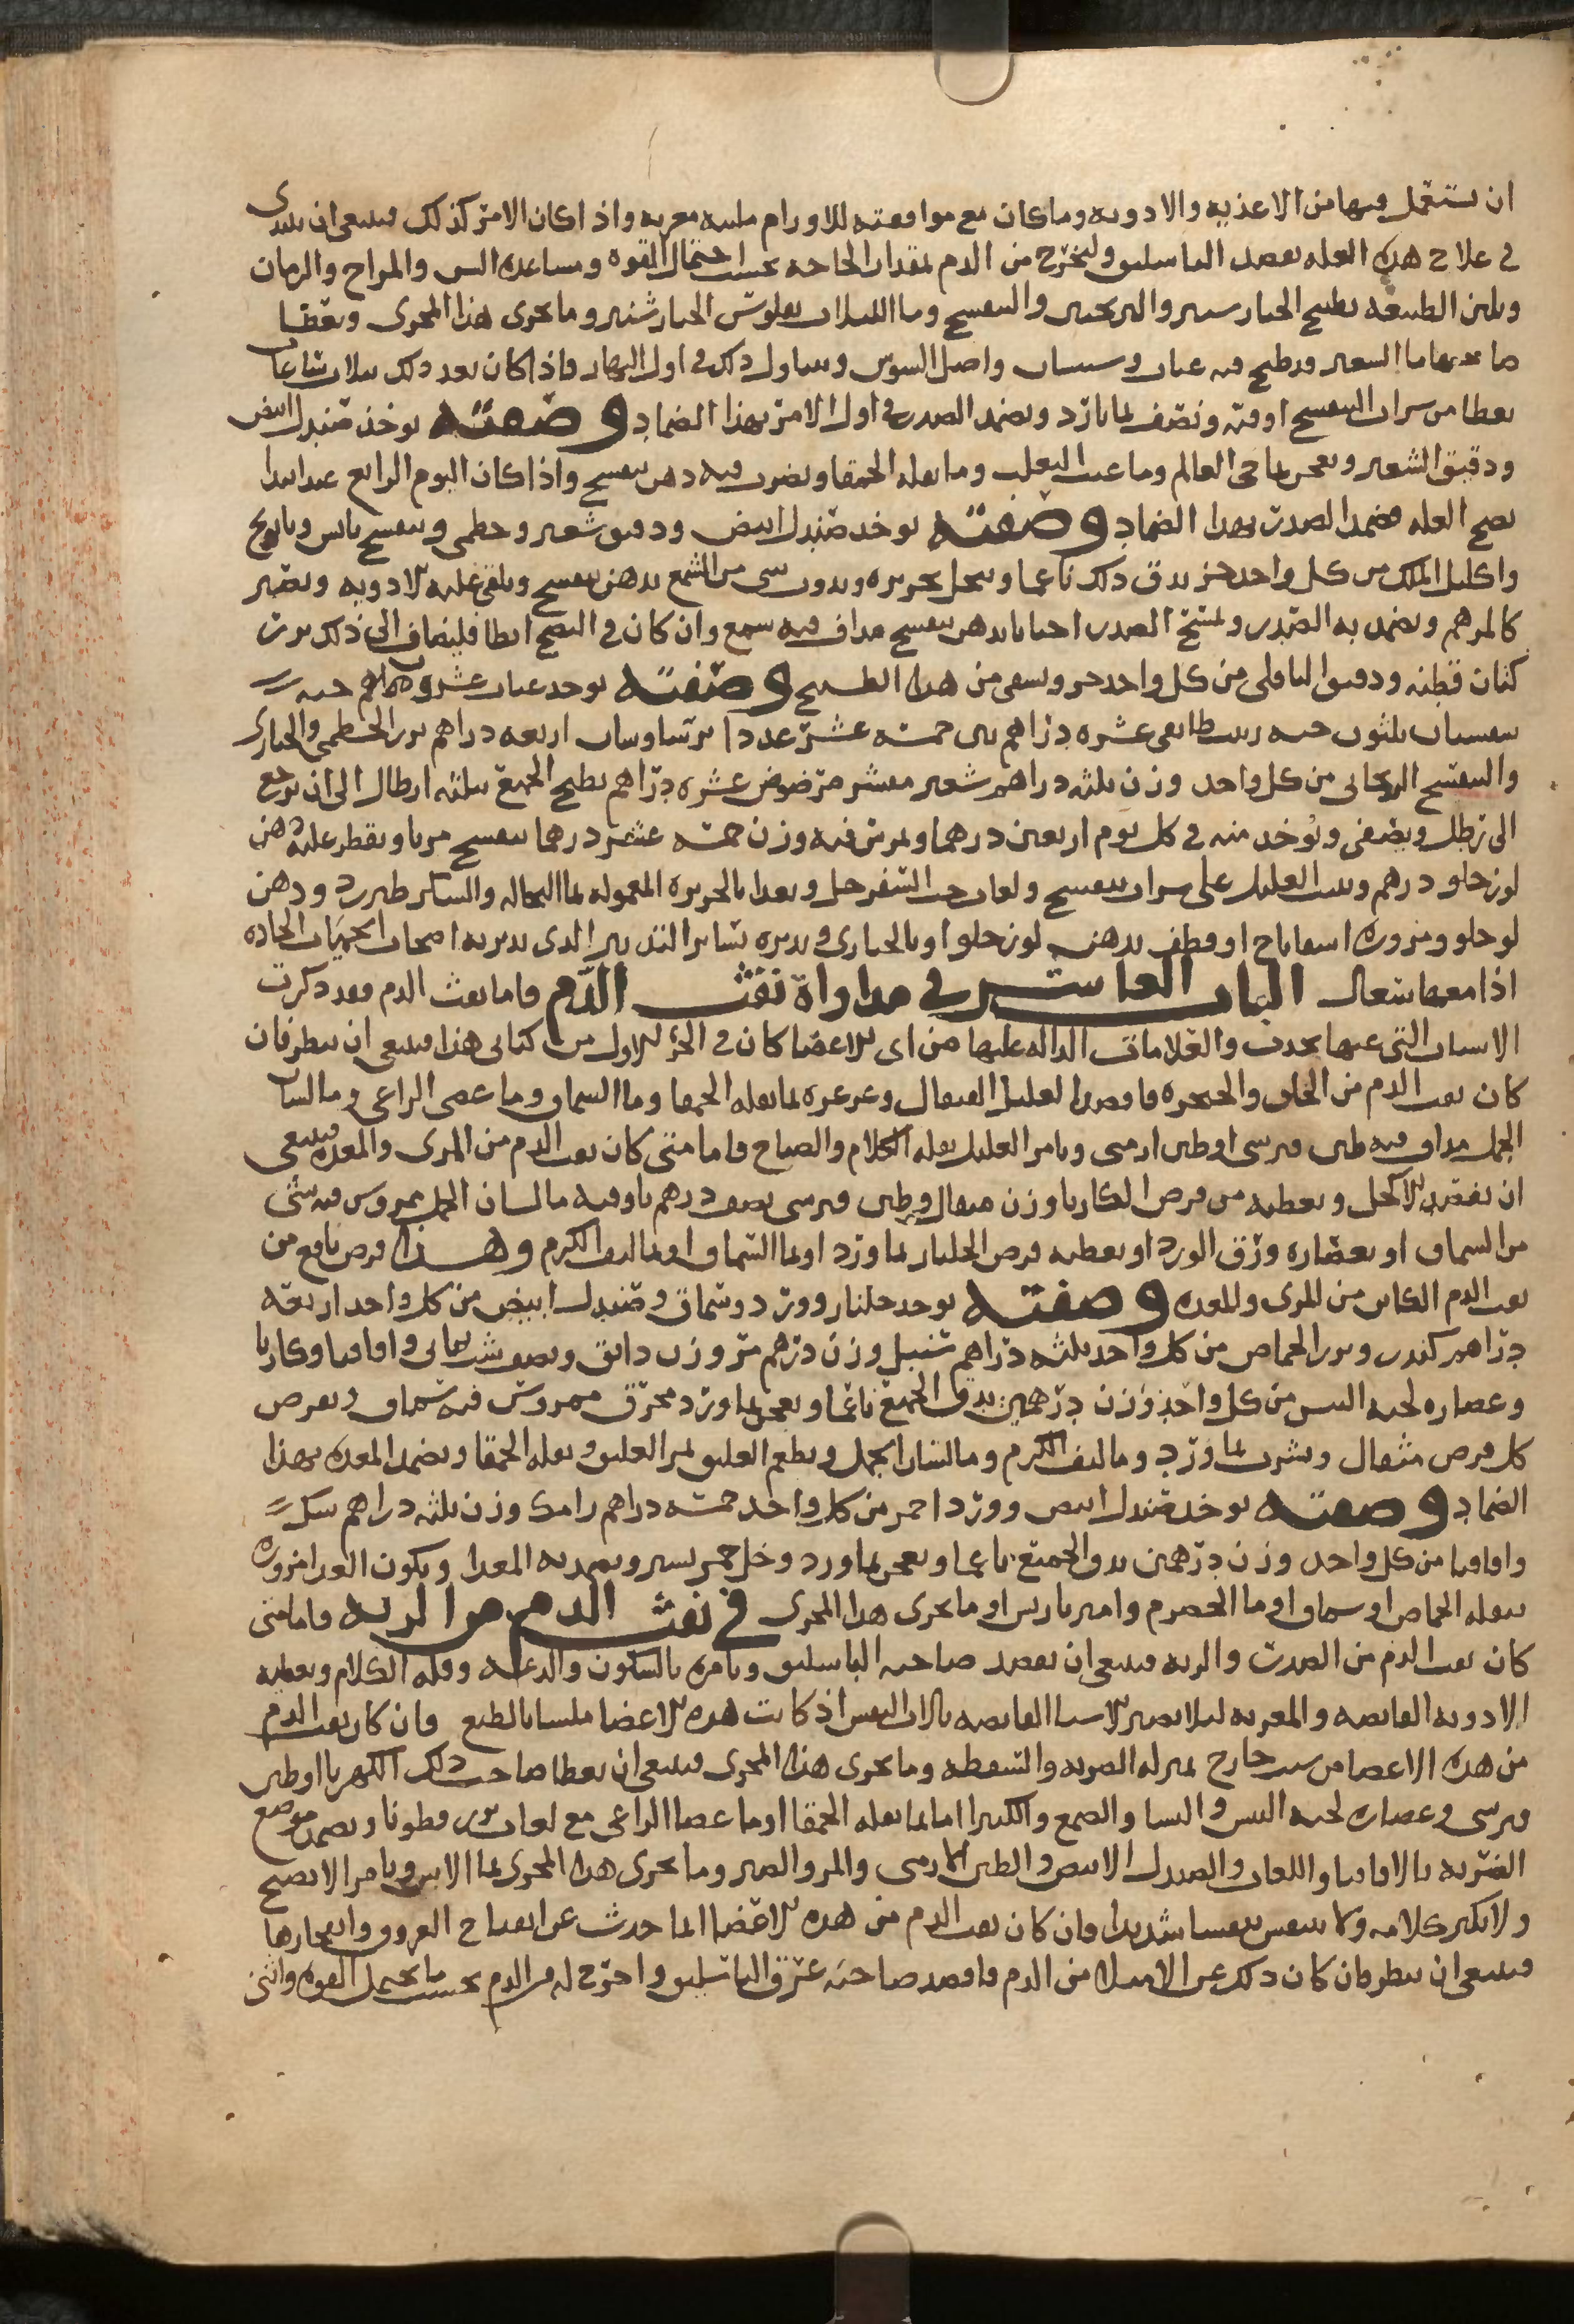 ان تستعمل فيها من الاغذيه والادويه وما كان مع موافقته للاورام ملينه مغريه واذا كان الامر كذلك فينبغي ان يبتدى
في علاج هذه العله بفصد الباسليق وليخرج من الدم بمقدار الحاجه بحسب احتمال القوه ومساعده السن والمزاج والزمان
وتلين الطبيعه بطبيخ الخيارشنبر والترنجبين والبنفسج وماء اللبلاب بفلوس الخيارشنبر وما يجرى هذا المجرى ويعطا
ماء الشعير قد طبخ فيه عناب وسبستان واصل السوس ويتناول ذلك في اول النهار فاذا كان بعد ذلك بثلاث ساعات
يعطا من شراب البنفسج اوقيه ونصف بما بارد ويضمد الصدر في اول الامر بهذا الضماد وصفته يوخذ صندل ابيض
ودقيق الشعير ويعجن بما حى العالم وما عنب الثعلب وما بقله الحمقا ويضرب فيه دهن بنفسج واذا كان اليوم الرابع عند ابتدا
نضج العله فضمد الصدر بهذا الضماد وصفته يوخذ صندل ابيض ودقيق شعير وخطمى وبنفسج يابس وبابونج
واكليل الملك من كل واحد جز يدق ذلك ناعما وينخل بحريره ويذوب شى من الشمع بدهن بنفسج ويلقى عليه الادويه ويصير
كالمرهم ويضمد به الصدر ولتمسح الصدر احيانا بدهن بنفسج مداف فيه شمع وان كان في النضج ابطا فليضاف الى ذلك بزر
كتان قطنه ودقيق الباقلى من كل واحد جز ويسقى من هذا الطبيخ وصفته يوخذ عناب عشرون حبه
سبستان ثلثون حبه زبيب طايفى عشره دراهم تين خمسه عشر عددا برشاوشان اربعه دراهم بزر الخطمى والخبازى
والبنفسج الريحانى من كل واحد وزن ثلثه دراهم شعير مقشر مرضوض عشره دراهم يطبخ الجميع بثلثه ارطال الى ان يرجع
الى رطل ويصفى ويوخذ منه في كل يوم اربعين درهما ويمرس فيه وزن خمسه عشر درهما بنفسج مربا ويقطر عليه دهن
لوز حلو درهم ويبيت العليل على شراب بنفسج ولعاب حب السفرجل ويغذا بالحريره المعموله بما النخاله والسكر طبرزد ودهن
لوز حلو ومزوره اسفاناخ او قطف بدهن لوز حلو او بالخبازى ويدبره بسائر التدبير الذى يدبر به اصحاب الحميات الحاده
اذا معها سعال الباب العاشر في مداواة نفث الدم فاما نفث الدم فقد ذكرت
الاسباب التى عنها يحدث والعلامات الداله عليها من اى الاعضا كان في الجز الاول من كتابى هذا فينبغى ان ينظر فان
كان نفث الدم من الحلق والحنجره فافصد العليل القيفال وغرغره بما بقله الحمقا وما السماق وما عصى الراعى وما لسان
الحمل مداف فيه طين قبرسى او طين ارمنى ويامر العليل بقله الكلام والصياح فاما متى كان نفث الدم من المرى والمعده فينبغى
ان تفصد الاكحل ويعطيه من قرص الكاربا وزن مثقال وطين قبرسى نصف درهم باوقيه ما لسان الحمل ممروس فيه شى
من السماق او بعصاره ورق الورد او يعطيه قرص الجلنار بما ورد او بما السماق او بما ليف الكرم وهذا قرص نافع من
نفث الدم الكائن من المرى والمعده وصفته يوخذ جلنار وورد وسماق وصندل ابيض من كل واحد اربعه
دراهم كندر وبزر الحماض من كل واحد ثلثه دراهم سنبل وزن درهم مر وزن دانق ونصف شب يمانى واقاقيا وكاربا
وعصاره لحيه التيس من كل واحد وزن درهمين يدق الجميع ناعما ويعجن بما ورد محرق ممروس فيه سماق ويقرص
كل قرص مثقال ويشرب بما ورد وما ليف الكرم وما لسان الحمل ويطعم العليق ثمر العليق وبقله الحمقا ويضمد المعده بهذا
الضماد وصفته يوخذ صندل ابيض وورد احمر من كل واحد خمسه دراهم رامك وزن ثلثه دراهم سك
واقاقيا من كل واحد وزن درهمين يدق الجميع ناعما ويعجن بما ورد وخل خمر يسير ويضمد به المعدا ويكون الغدا مزوره
ببقله الحماض او سماق او ما الحصرم وامير باريس او ما يجرى هذا المجرى في نفث الدم من الريه فاما متى
كان نفث الدم من الصدر والريه فينبغى ان يفصد صاحبه الباسليق ويامره بالسكون والدعه وقله الكلام ويعطيه
الادويه القابضه والمغريه ليلا يضر الاشيا القابضه بالات النفس اذ كانت هذه الاعضا ملسا بالطبع وان كان نفث الدم
من هذه الاعضا من سبب خارج بمنزله الضربه والسقطه وما يجرى هذا المجرى فينبغى ان يعطا صاحب ذلك الكهربا او طين
قبرسى وعصاره لحيه التيس والنشا والصمغ والكثيرا اما بما بقله الحمقا او ما عصا الراعى مع لعاب بزر قطونا ويضمد موضع
الضربه بالاقاقيا واللعاب والصندل الابيض والطين الارمنى والمر والصبر وما يجرى هذا المجرى بما الاس ويامر الا يصيح
ولا يكثر كلامه ولا يتنفس تنفسا شديدا وان كان نفث الدم من هذه الاعضا انما حدث عن انفتاح العروق وانفجارها
فينبغى ان ينظر فان كان ذلك عن الامتلا من الدم فافصد صاحبه عرق الباسليق واخرج له من الدم بحسب ما يحتمل القوه واثنى